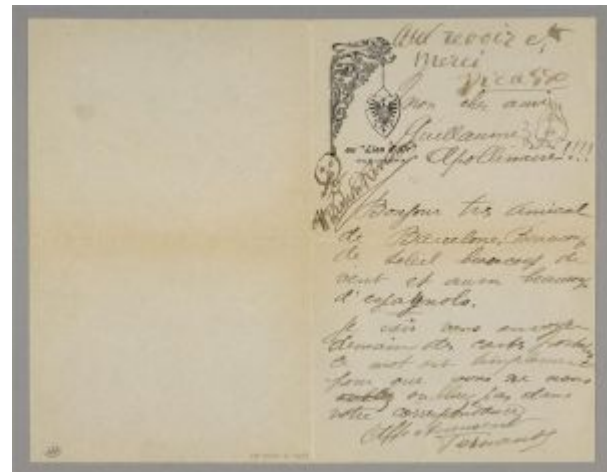 au revoir et
merci
Picasso
Mon cher ami
Guillaume
Apollinaire!!!
au "Lion d'Or"
Bonjour très amical
de Barcelone, beaucoup
de soleil beaucoup de
vent et aussi beaucoup
d'espagnols.
Je vais vous envoyer
demain des cartes
ce mot est simplement
pour que vous ne nous
oubliez pas dans
votre correspondance
Affectueusement
Fernande